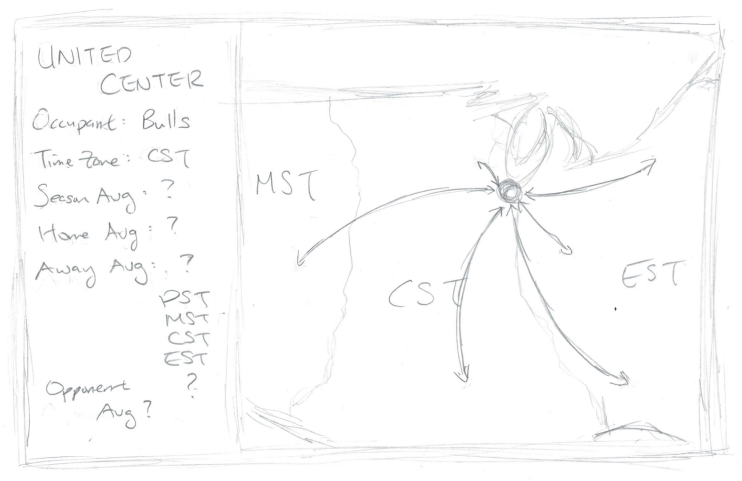 UNITED
CENTER
Occupant: Bulls
Time Zone: CST
Season Avg: ?
Home Avg: ?
Away Avg: ?
PST
MST
CST
EST
?
Opponent
Avg?
MST
CST
EST